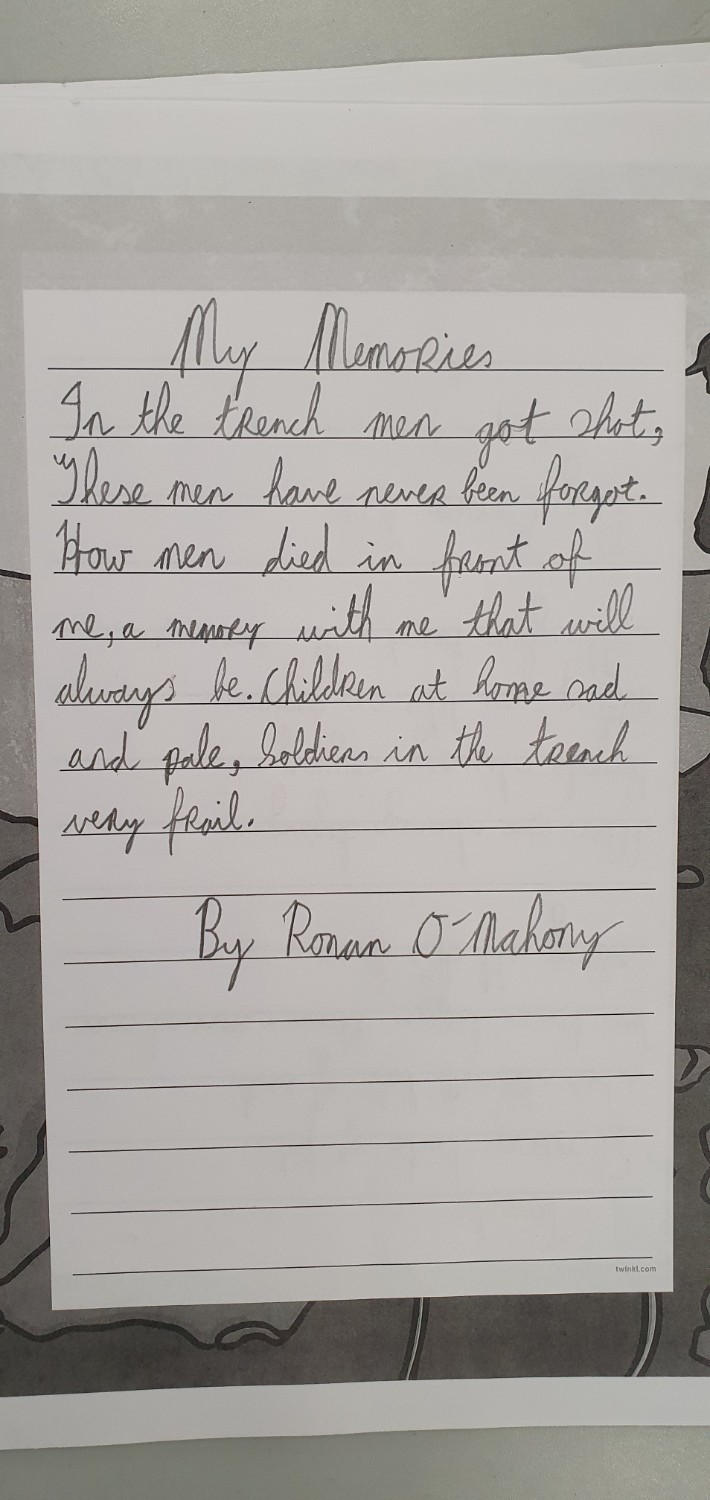 My Memories
In the trench men got shot,
These men have never been forgot.
How men died in front of
me, a memory with me that will
always be. Children at home sad
and pale, Soldiers in the trench
very frail.
By Ronan O'Mahony
twinkl.com